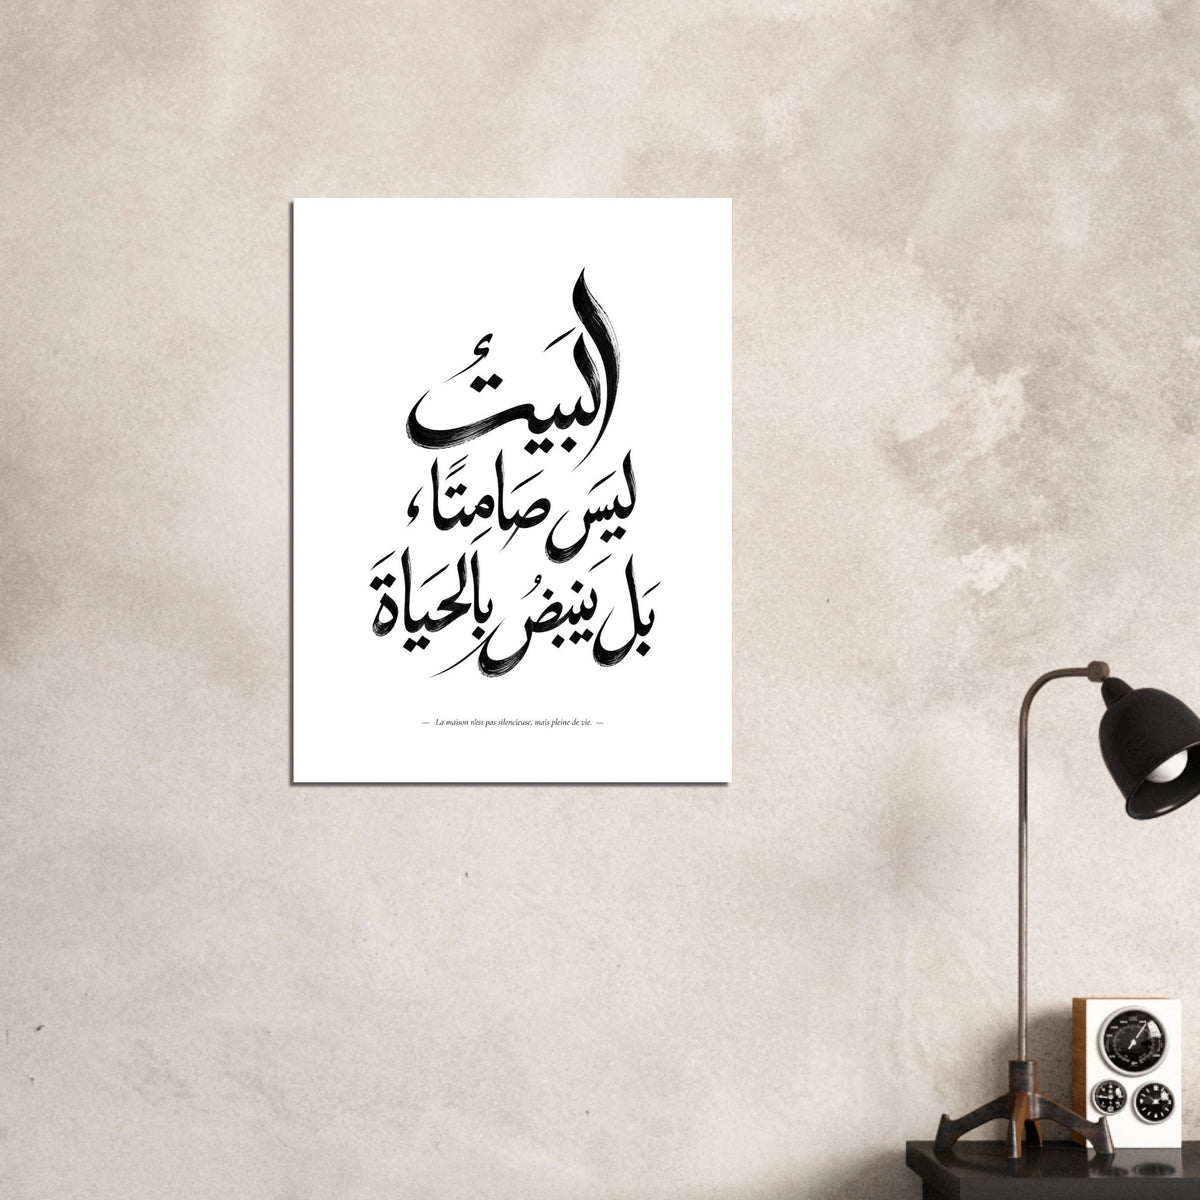 البَيتُ
ليسَ صَامِتًا،
بَل يَنبضُ بِالحَيَاةَ
— La maison n'est pas silencieuse, mais pleine de vie. —